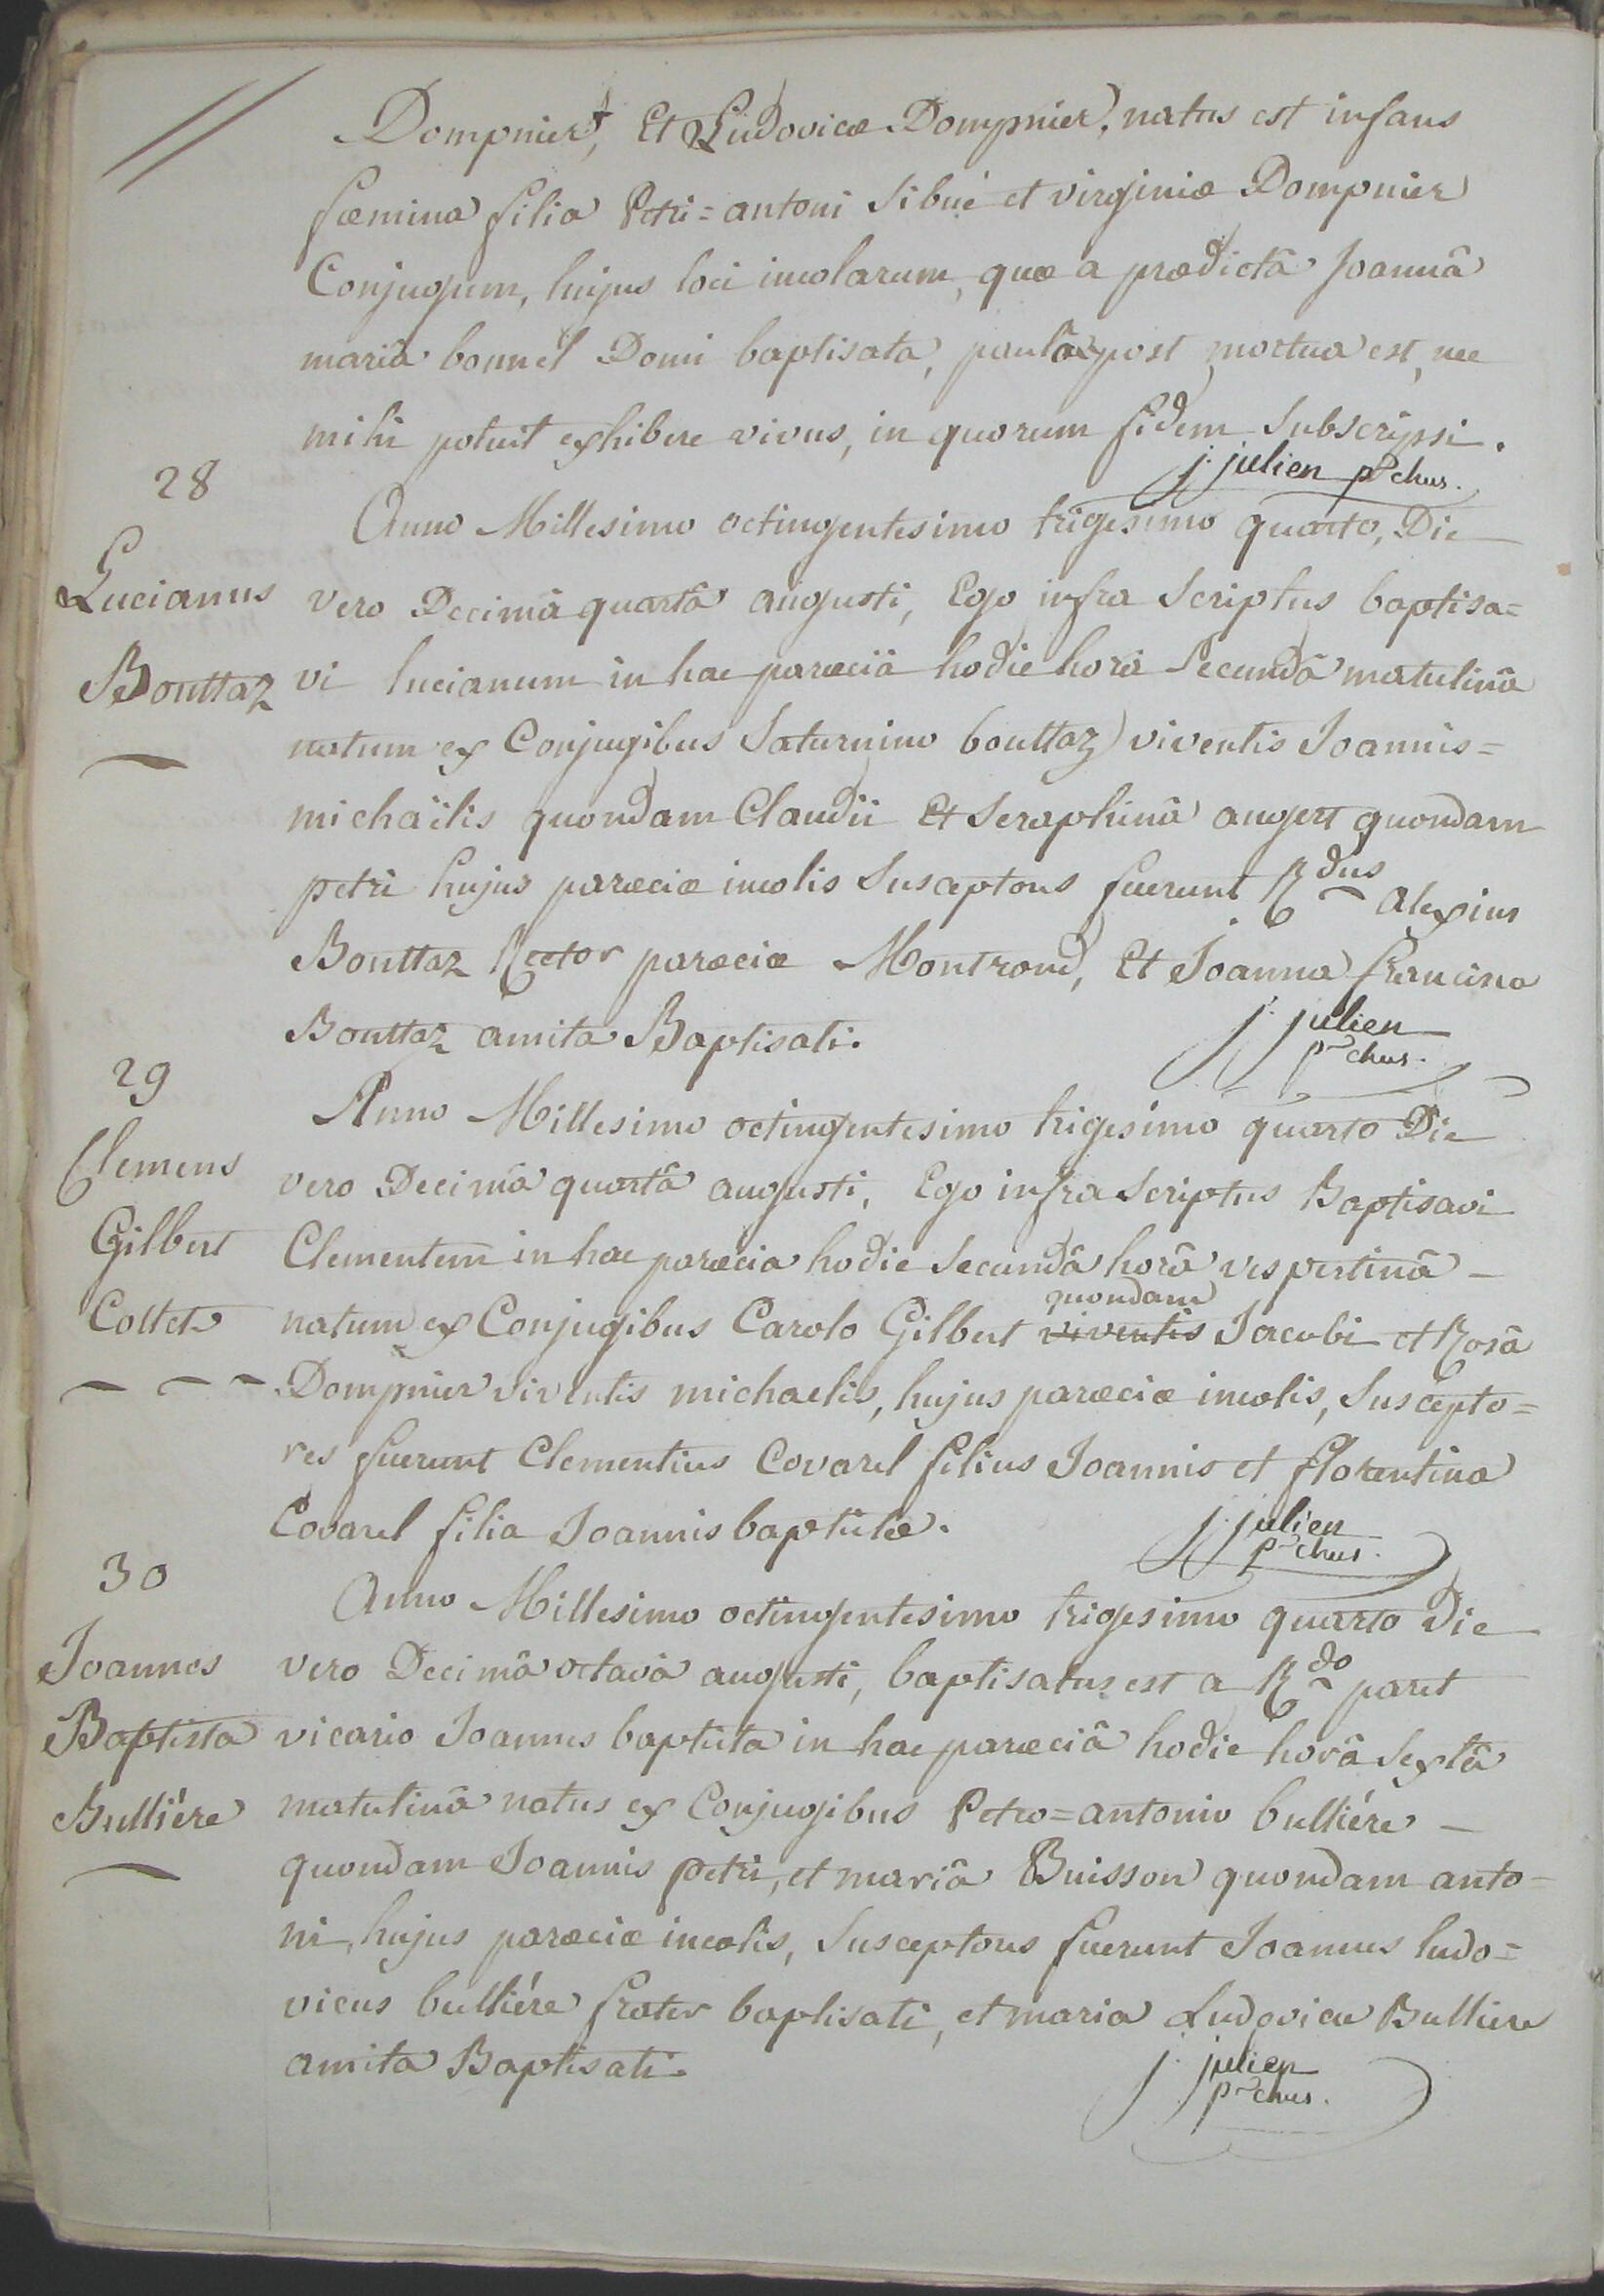 Dompnier, Et Ludovicæ Dompnier, natus est infans
fæmina filia Petri=antoni Sibué et virginiæ Dompnier
Conjugum, hujus loci incolarum, quæ a prædictâ Joannâ
mariâ bonnel Domi baptisata, paulo post mortua est, nec
mihi potuit exhibere vivus, in quorum fidem Subscripsi.
j. julien p~chus.
28
Anno Millesimo octingentesimo trigesimo quarto, Die
Lucianus vero Decimâ quartâ augusti, Ego infra Scriptus baptisa=
Bouttaz vi lucianum in hac parœciâ hodie horâ Secundâ matutinâ
natum ex Conjugibus Saturnino bouttaz viventis Joannis=
michaïlis quondam Claudii Et Seraphinâ augert quondam
petri hujus parœciæ incolis Susceptores fuerunt Rdus alexius
Bouttaz Rector parœciæ Montrond, Et Joanna francisca
Bouttaz amita Baptisati.
j. julien
p~chus.
29
Anno Millesimo octingentesimo trigesimo quarto Die
Clemens vero Decimâ quartâ augusti, Ego infra Scriptus Baptisavi
Gilbert Clementem in hac parœcia hodie Secundâ horâ vespertinâ —
quondam
Collet natum ex Conjugibus Carolo Gilbert viventis Jacobi et Rosâ
Dompnier viventis michaelis, hujus parœciæ incolis, Suscepto=
res fuerunt Clementius Covarel filius Joannis et florentina
Covarel filia Joannis baptistæ.
j. julien
p~chus.
30
Anno Millesimo octingentesimo trigesimo quarto Die
Joannes vero Decimâ octavâ augusti, baptisatus est a Rdo paret
Baptista vicario Joannes baptista in hac parœciâ hodie horâ Sextâ
Bulliére matutinâ natus ex Conjugibus Petro=antonio bulliére —
quondam Joannis petri, et mariâ Buisson quondam anto=
ni, hujus parœciæ incolis, Susceptores fuerunt Joannes ludo=
vicus bulliére frater baptisati, et maria Ludovica Bulliere
amita Baptisati.
j. julien
p~chus.